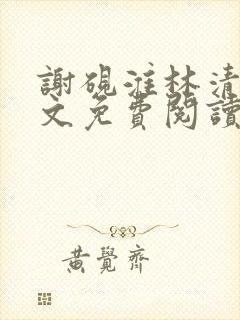 謝硯濰林清
文免費閱讀
黃覺齊